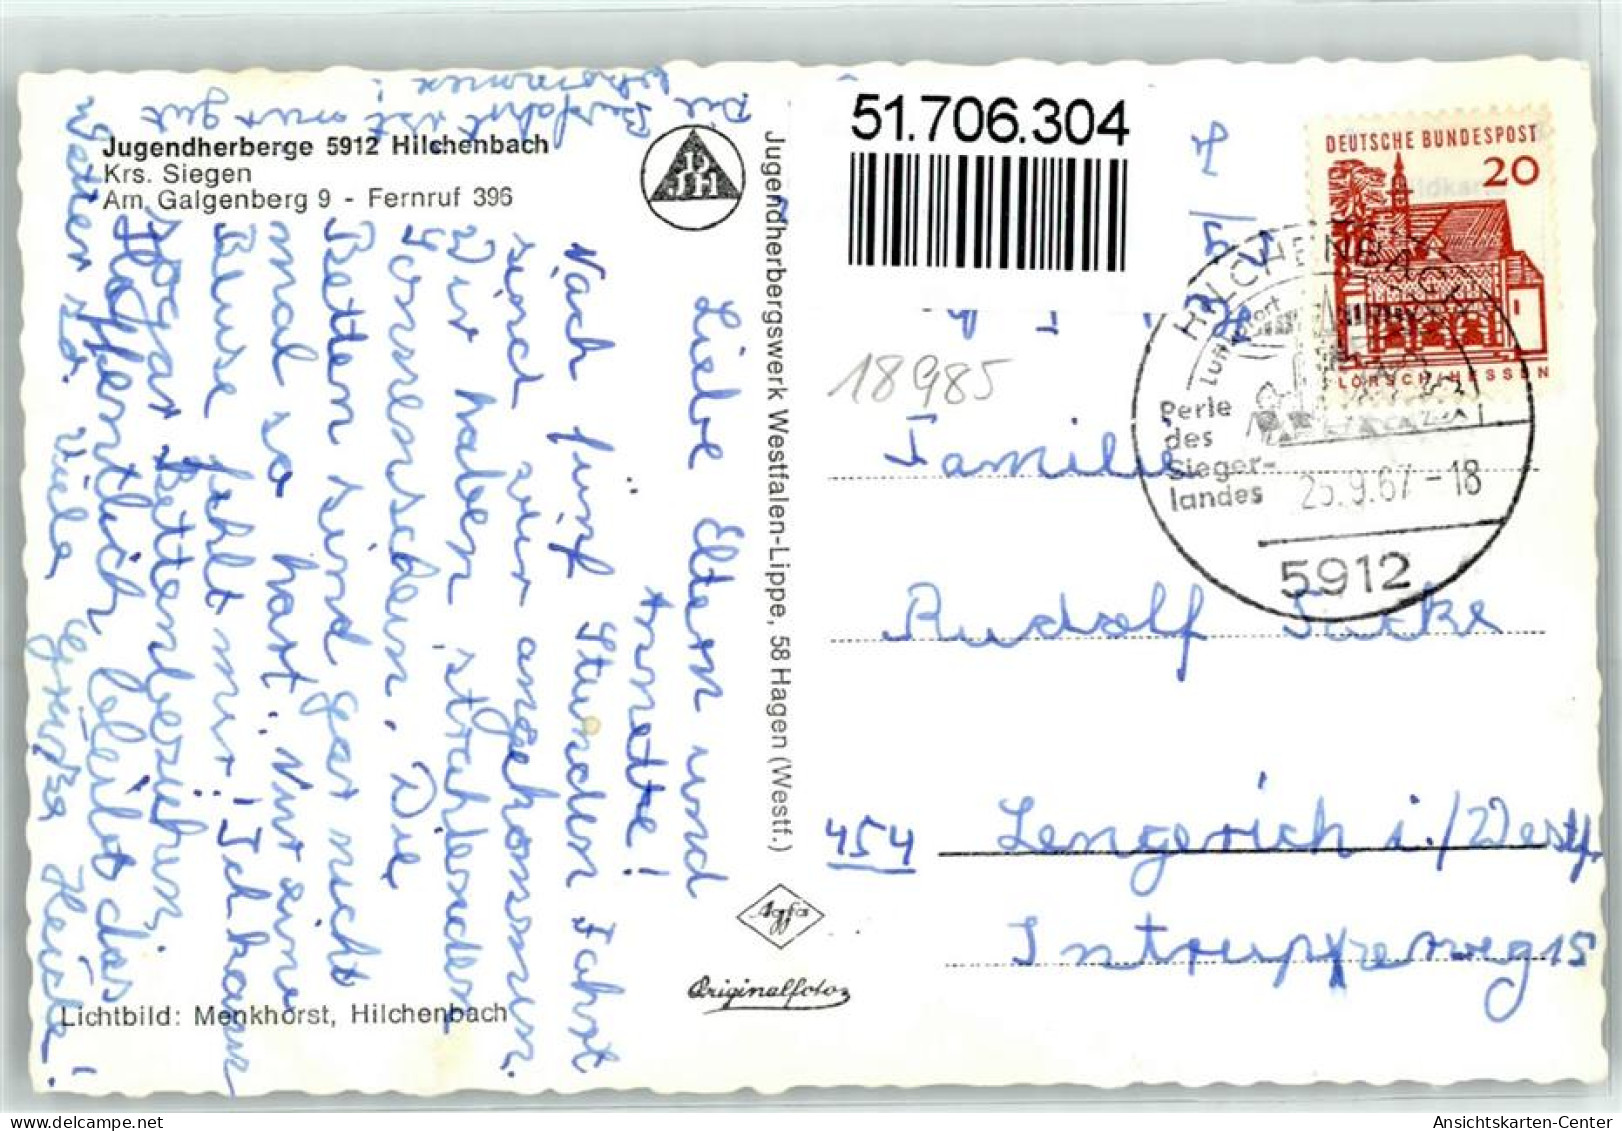 Jugendherberge 5912 Hilchenbach
Krs. Siegen
Am Galgenberg 9 - Fernruf 396
DJH
Jugendherbergswerk Westfalen-Lippe, 58 Hagen (Westf.)
Agfa
Originalfoto
Lichtbild: Menkhorst, Hilchenbach
51.706.304
18985
DEUTSCHE BUNDESPOST
20
LORSCH/HESSEN
HILCHENBACH
Luftkurort
Perle
des
Sieger-
landes
25.9.67-18
5912
Liebe Eltern und
Annette!
Nach fünf Stunden Fahrt
sind wir angekommen.
Wir haben strahlenden
Sonnenschein. Die
Betten sind gar nicht
mal so hart. Nur eine
Bluse fehlt mir! Ich kann
sogar Bettenbeziehen.
Hoffentlich bleibt das
Wetter so. Viele Grüße Heide!
Die Fahrt ist nur gut
Familie
Rudolf
454 Lengerich i./Westf.
Intrupperweg 15
Ansichtskarten-Center